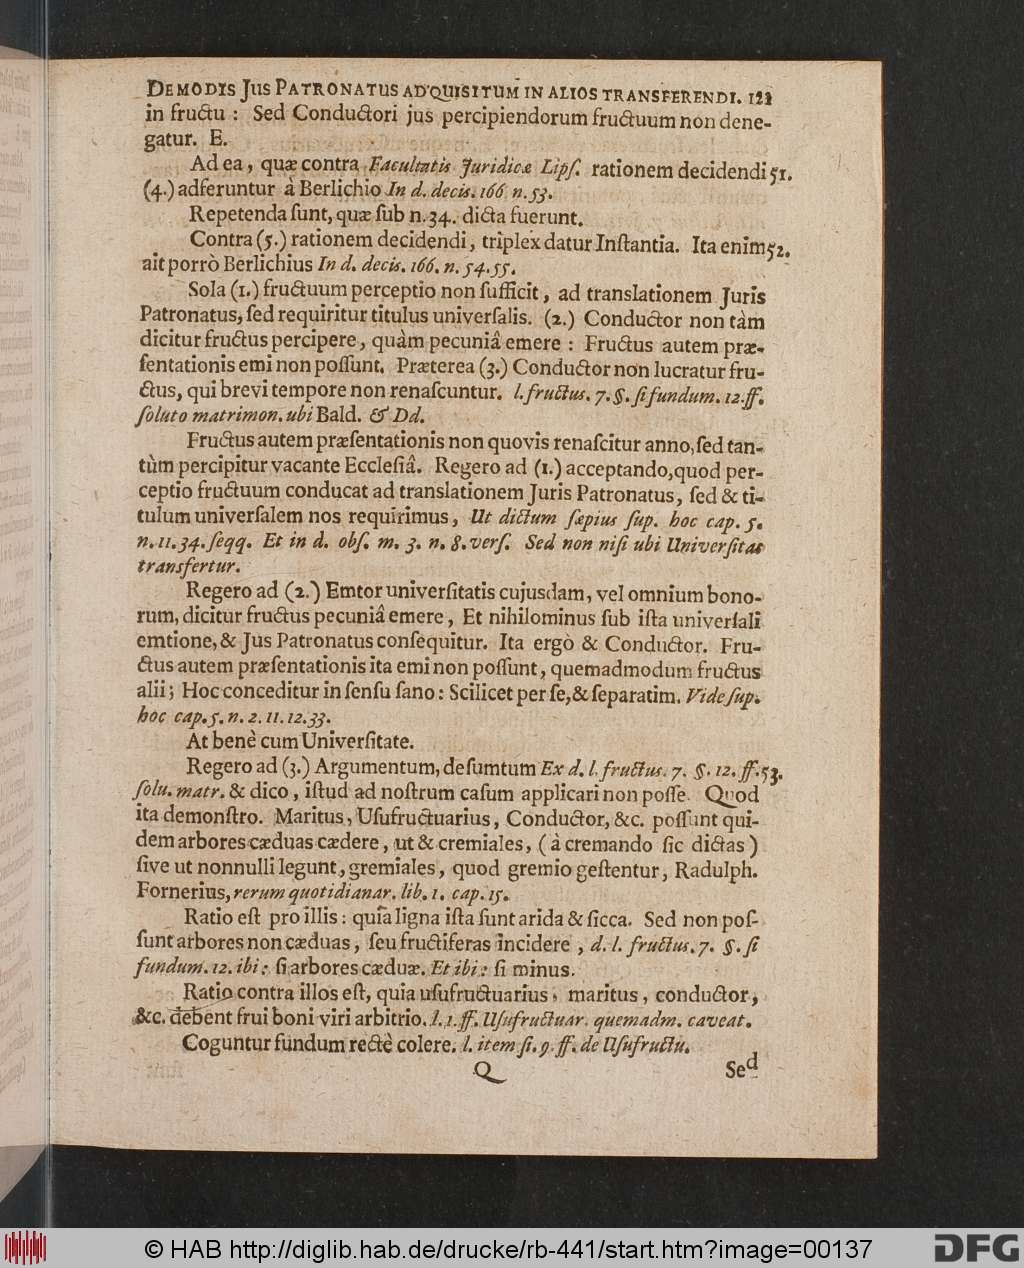 DE MODIS JUS PATRONATUS ADQUISITUM IN ALIOS TRANSFERENDI. 121
in fructu : Sed Conductori jus percipiendorum fructuum non dene-
gatur. E.
Ad ea, quæ contra Facultatis Juridicæ Lipſ. rationem decidendi 51.
(4.) adferuntur à Berlichio In d. decis. 166 n. 53.
Repetenda ſunt, quæ ſub n. 34. dicta fuerunt.
Contra (5.) rationem decidendi, triplex datur Inſtantia. Ita enim 52.
ait porrò Berlichius In d. decis. 166. n. 54. 55.
Sola (1.) fructuum perceptio non ſufficit, ad translationem Juris
Patronatus, ſed requiritur titulus univerſalis. (2.) Conductor non tàm
dicitur fructus percipere, quàm pecuniâ emere : Fructus autem præ-
ſentationis emi non poſſunt. Præterea (3.) Conductor non lucratur fru-
ctus, qui brevi tempore non renaſcuntur. l. fructus. 7. §. ſi fundum. 12. ff.
ſoluto matrimon. ubi Bald. & Dd.
Fructus autem præſentationis non quovis renaſcitur anno, ſed tan-
tùm percipitur vacante Eccleſiâ. Regero ad (1.) acceptando, quod per-
ceptio fructuum conducat ad translationem Juris Patronatus, ſed & ti-
tulum univerſalem nos requirimus, Ut dictum ſæpius ſup. hoc cap. 5.
n. 11. 34. ſeqq. Et in d. obſ. m. 3. n. 8. verſ. Sed non niſi ubi Univerſitas
transfertur.
Regero ad (2.) Emtor univerſitatis cujusdam, vel omnium bono-
rum, dicitur fructus pecuniâ emere, Et nihilominus ſub iſta univerſali
emtione, & Jus Patronatus conſequitur. Ita ergò & Conductor. Fru-
ctus autem præſentationis ita emi non poſſunt, quemadmodum fructus
alii; Hoc conceditur in ſenſu ſano: Scilicet per ſe, & ſeparatim. Vide ſup.
hoc cap. 5. n. 2. 11. 12. 33.
At benè cum Univerſitate.
Regero ad (3.) Argumentum, deſumtum Ex d. l. fructus. 7. §. 12. ff. 53.
ſolu. matr. & dico, iſtud ad noſtrum caſum applicari non poſſe. Quod
ita demonſtro. Maritus, Uſufructuarius, Conductor, &c. poſſunt qui-
dem arbores cæduas cædere, ut & cremiales, (à cremando ſic dictas)
ſive ut nonnulli legunt, gremiales, quod gremio geſtentur, Radulph.
Fornerius, rerum quotidianar. lib. 1. cap. 15.
Ratio eſt pro illis: quia ligna iſta ſunt arida & ſicca. Sed non poſ-
ſunt arbores non cæduas, ſeu fructiferas incidere, d. l. fructus. 7. §. ſi
fundum. 12. ibi: ſi arbores cæduæ. Et ibi: ſi minus.
Ratio contra illos eſt, quia uſufructuarius, maritus, conductor,
&c. debent frui boni viri arbitrio. l. 1. ff. Uſufructuar. quemadm. caveat.
Coguntur fundum rectè colere. l. item ſi. 9. ff. de Uſufructu.
Q Sed
© HAB http://diglib.hab.de/drucke/rb-441/start.htm?image=00137 DFG